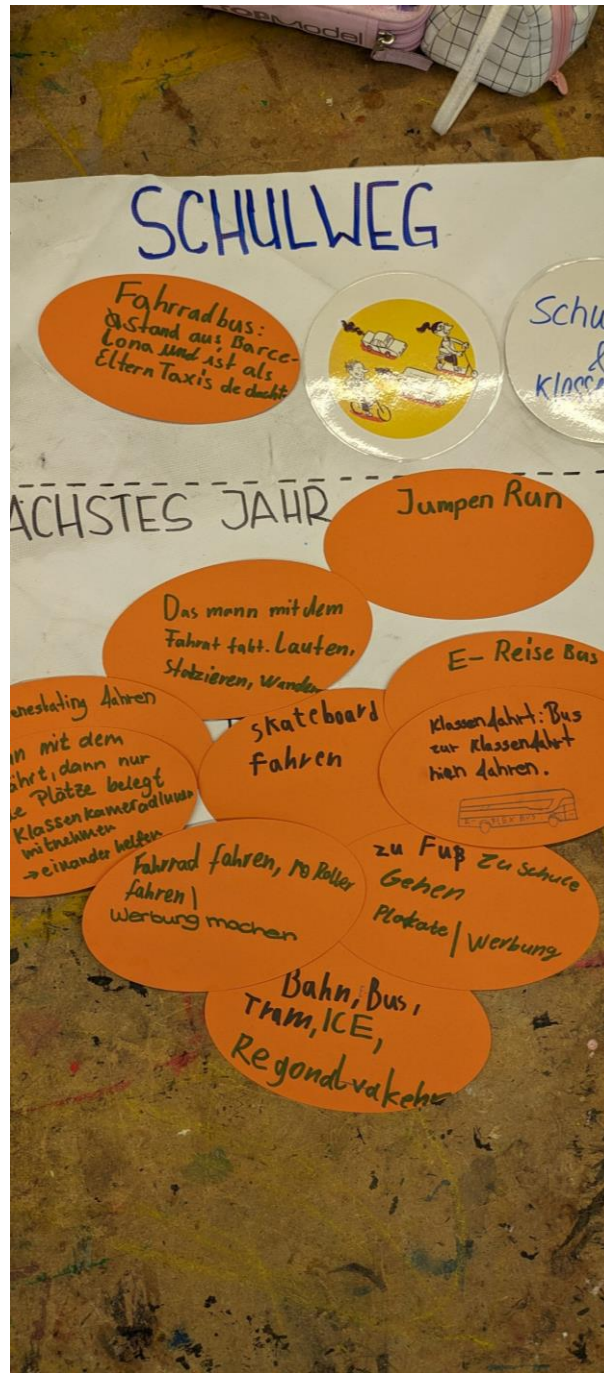 TOPModel
SCHULWEG
Fahrradbus:
stand aus Barce-
lona und ist als
Eltern Taxis de dacht
Schu
&
Klasse
ÄCHSTES JAHR
Jumpen Run
Das mann mit dem
Fahrat fabt. Laufen,
Stolzieren, Wandern
E- Reise Bus
eneskating fahren
skateboard
fahren
Klassenfahrt: Bus
zur Klassenfahrt
hien fahren.
n mit dem
ährt, dann nur
e Plätze belegt
Klassenkamerad
mitnehmen
→ einander helfen
Fahrrad fahren, Roller
fahren |
Werbung machen
zu Fuß zu schule
Gehen
Plakate | Werbung
Bahn, Bus,
Tram, ICE,
Regonalvakehr